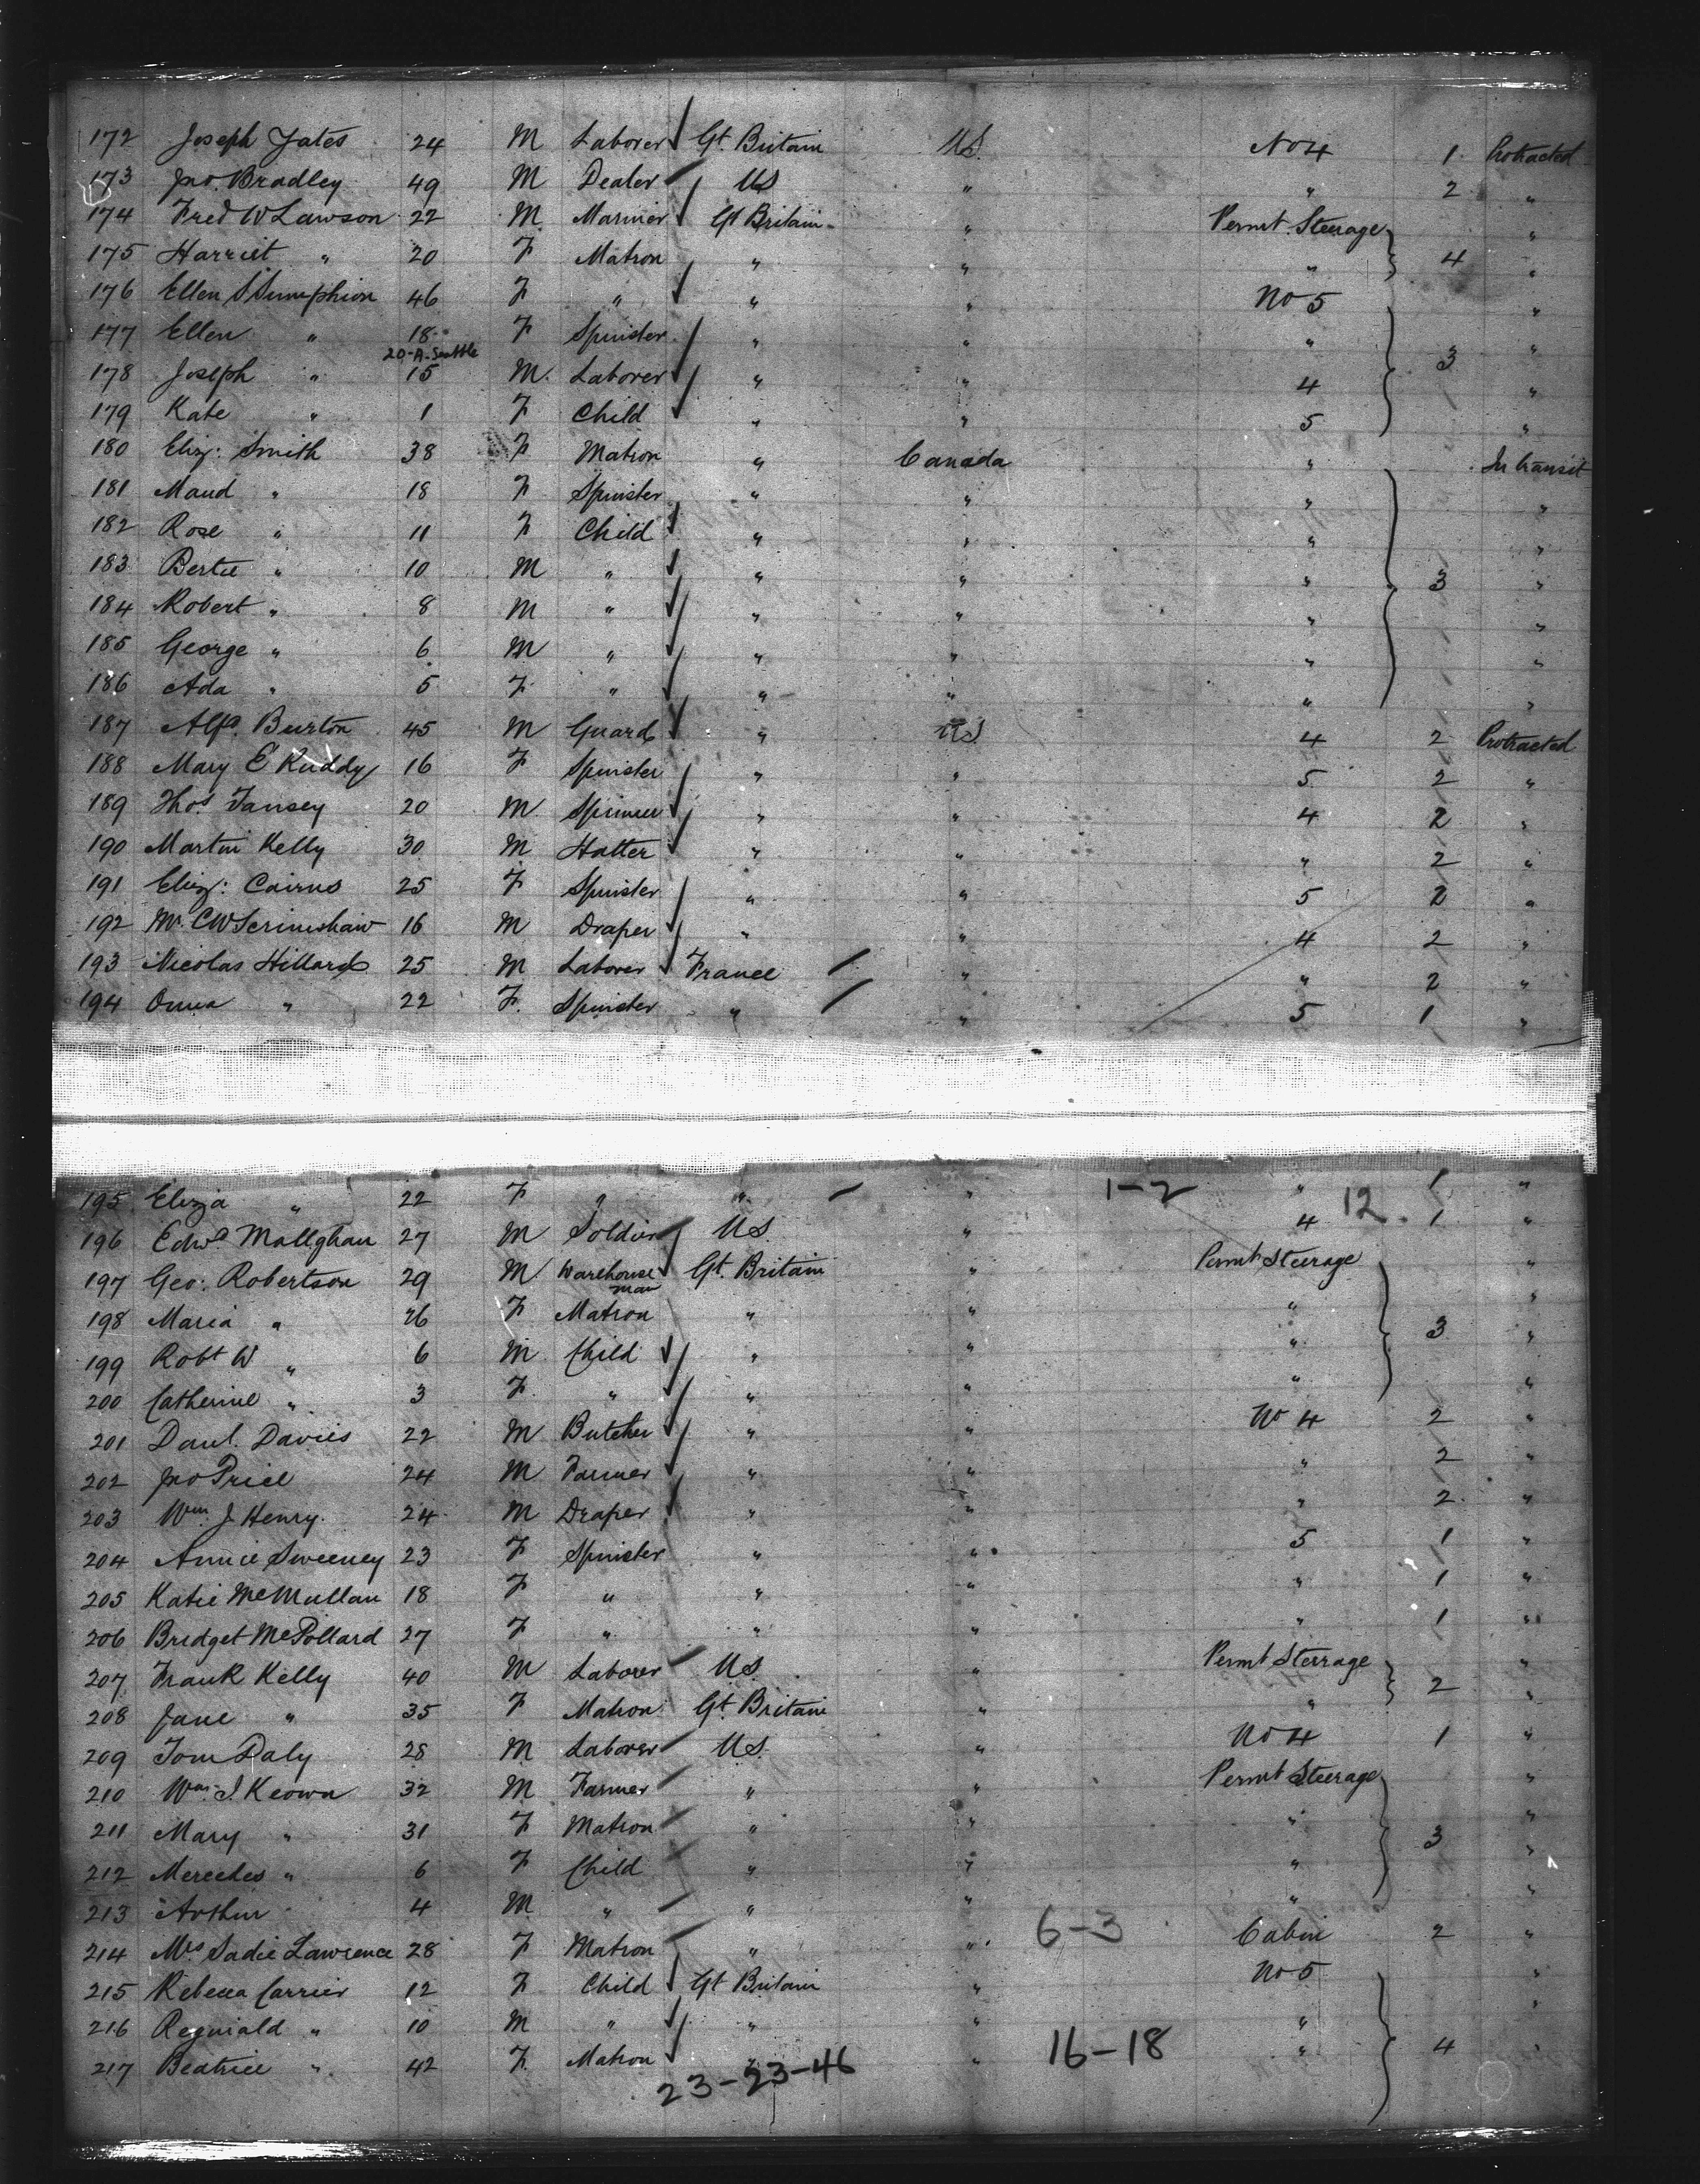 172 Joseph Yates 24 M Laborer Gt. Britain U.S. No 4 1 Protracted
173 Jno. Bradley 49 M Dealer US " " 2 "
174 Fred W Lawson 22 M Marinier Gt Britain " Permt. Steerage "
175 Harriet " 20 F Matron " " " 4 "
176 Ellen S 46 F " " " No 5 "
177 Ellen " 18 F Spinster " " " "
20-A-Seattle
178 Joseph " 15 M. Laborer " " 4 3 "
179 Kate " 1 F Child " " 5 "
180 Eliz: Smith 38 F Matron " Canada " In transit
181 Maud " 18 F Spinster " " " "
182 Rose " 11 F Child " " " "
183 Bertie " 10 M " " " " 3 "
184 Robert " 8 M " " " " "
185 George " 6 M " " " " "
186 Ada " 5 F " " " " "
187 Alfd. Burton 45 M Guard " U.S. 4 2 Protracted
188 Mary E Ruddy 16 F Spinster " " 5 2 "
189 Thos. Tansey 20 M Spinner " " 4 2 "
190 Martin Kelly 30 M Hatter " " " 2 "
191 Eliz: Cairns 25 F Spinster " " 5 2 "
192 Mr. CW Scrimshaw 16 M Draper " " 4 2 "
193 Nicolas Hillard 25 M Laborer France " " 2 "
194 " 22 F. Spinster " " 5 1 "
195 Eliza " 22 F " " " 1-2 " 1 "
196 Edwd. Mallghan 27 M Soldier U.S. " 4 12 1 "
197 Geo: Robertson 29 M Warehouse man Gt. Britain " Permt Steerage "
198 Maria " 26 F Matron " " " "
199 Robt W " 6 M Child " " " 3 "
200 Catherine " 3 F " " " " "
201 Danl. Davies 22 M Butcher " " No 4 2 "
202 Jno Price 24 M Farmer " " " 2 "
203 Wm. J Henry 24 M Draper " " " 2 "
204 Annie Sweeney 23 F Spinster " " 5 1 "
205 Katie McMullan 18 F " " " " 1 "
206 Bridget McPollard 27 F " " " " 1 "
207 Frank Kelly 40 M Laborer U.S. " Permt Sterrage "
208 Jane " 35 F Matron Gt. Britain " " 2 "
209 Tom Daly 28 M Laborer U.S. " No 4 1 "
210 Wm. J. Keown 32 M Farmer " " Permt Steerage "
211 Mary " 31 F Matron " " " "
212 Mercedes " 6 F Child " " " 3 "
213 Arthur 4 M " " " " "
214 Mrs Sadie Lawrence 28 F Matron " " 6-3 Cabin 2 "
215 Rebecca Carrier 12 F Child Gt Britain " No 5 "
216 Reginald " 10 M " " " " "
217 Beatrice " 42 F. Matron " " 16-18 " 4 "
23-23-46